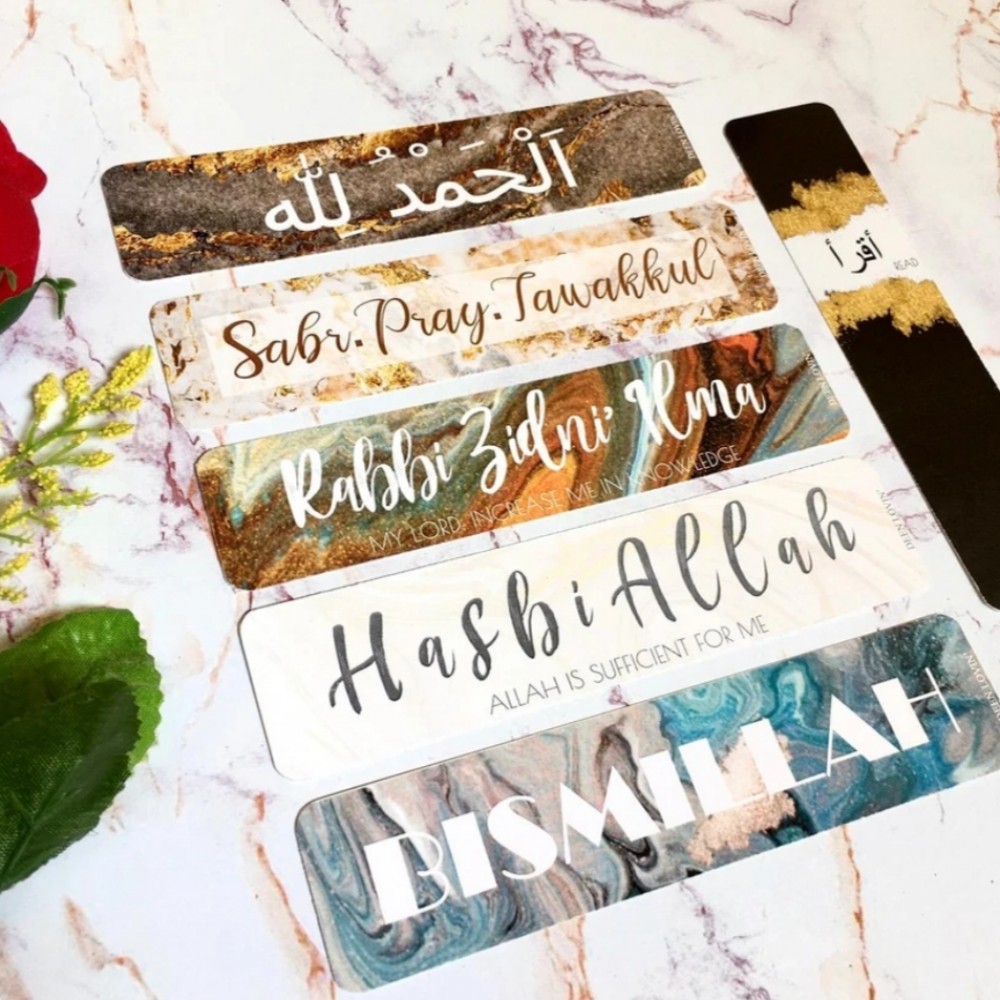 اَلْحَمْدُ لِلّٰه
Sabr. Pray. Tawakkul
Rabbi Zidni' Ilma
MY LORD, INCREASE ME IN KNOWLEDGE
Hasbi Allah
ALLAH IS SUFFICIENT FOR ME
BISMILLAH
أقرأ
READ